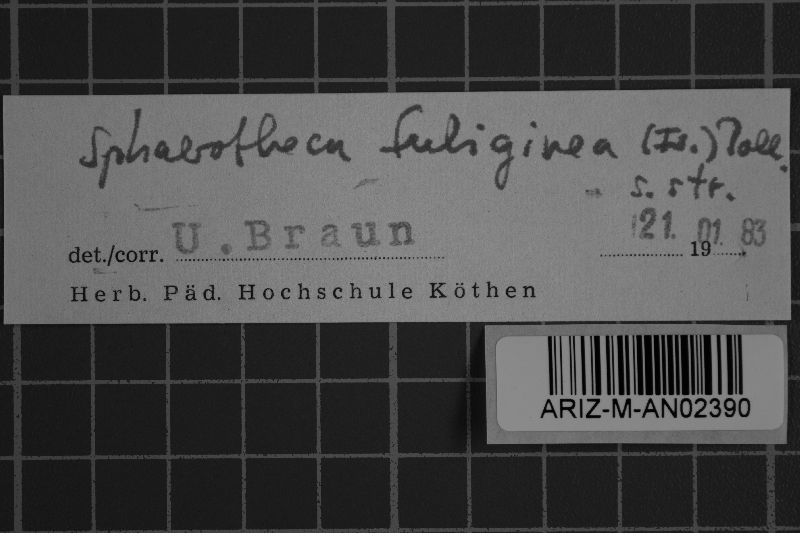 Sphaerotheca fuliginea (Fr.) Poll.
s. str.
21. 01. 83
det./corr. U. Braun 19
Herb. Päd. Hochschule Köthen
ARIZ-M-AN02390